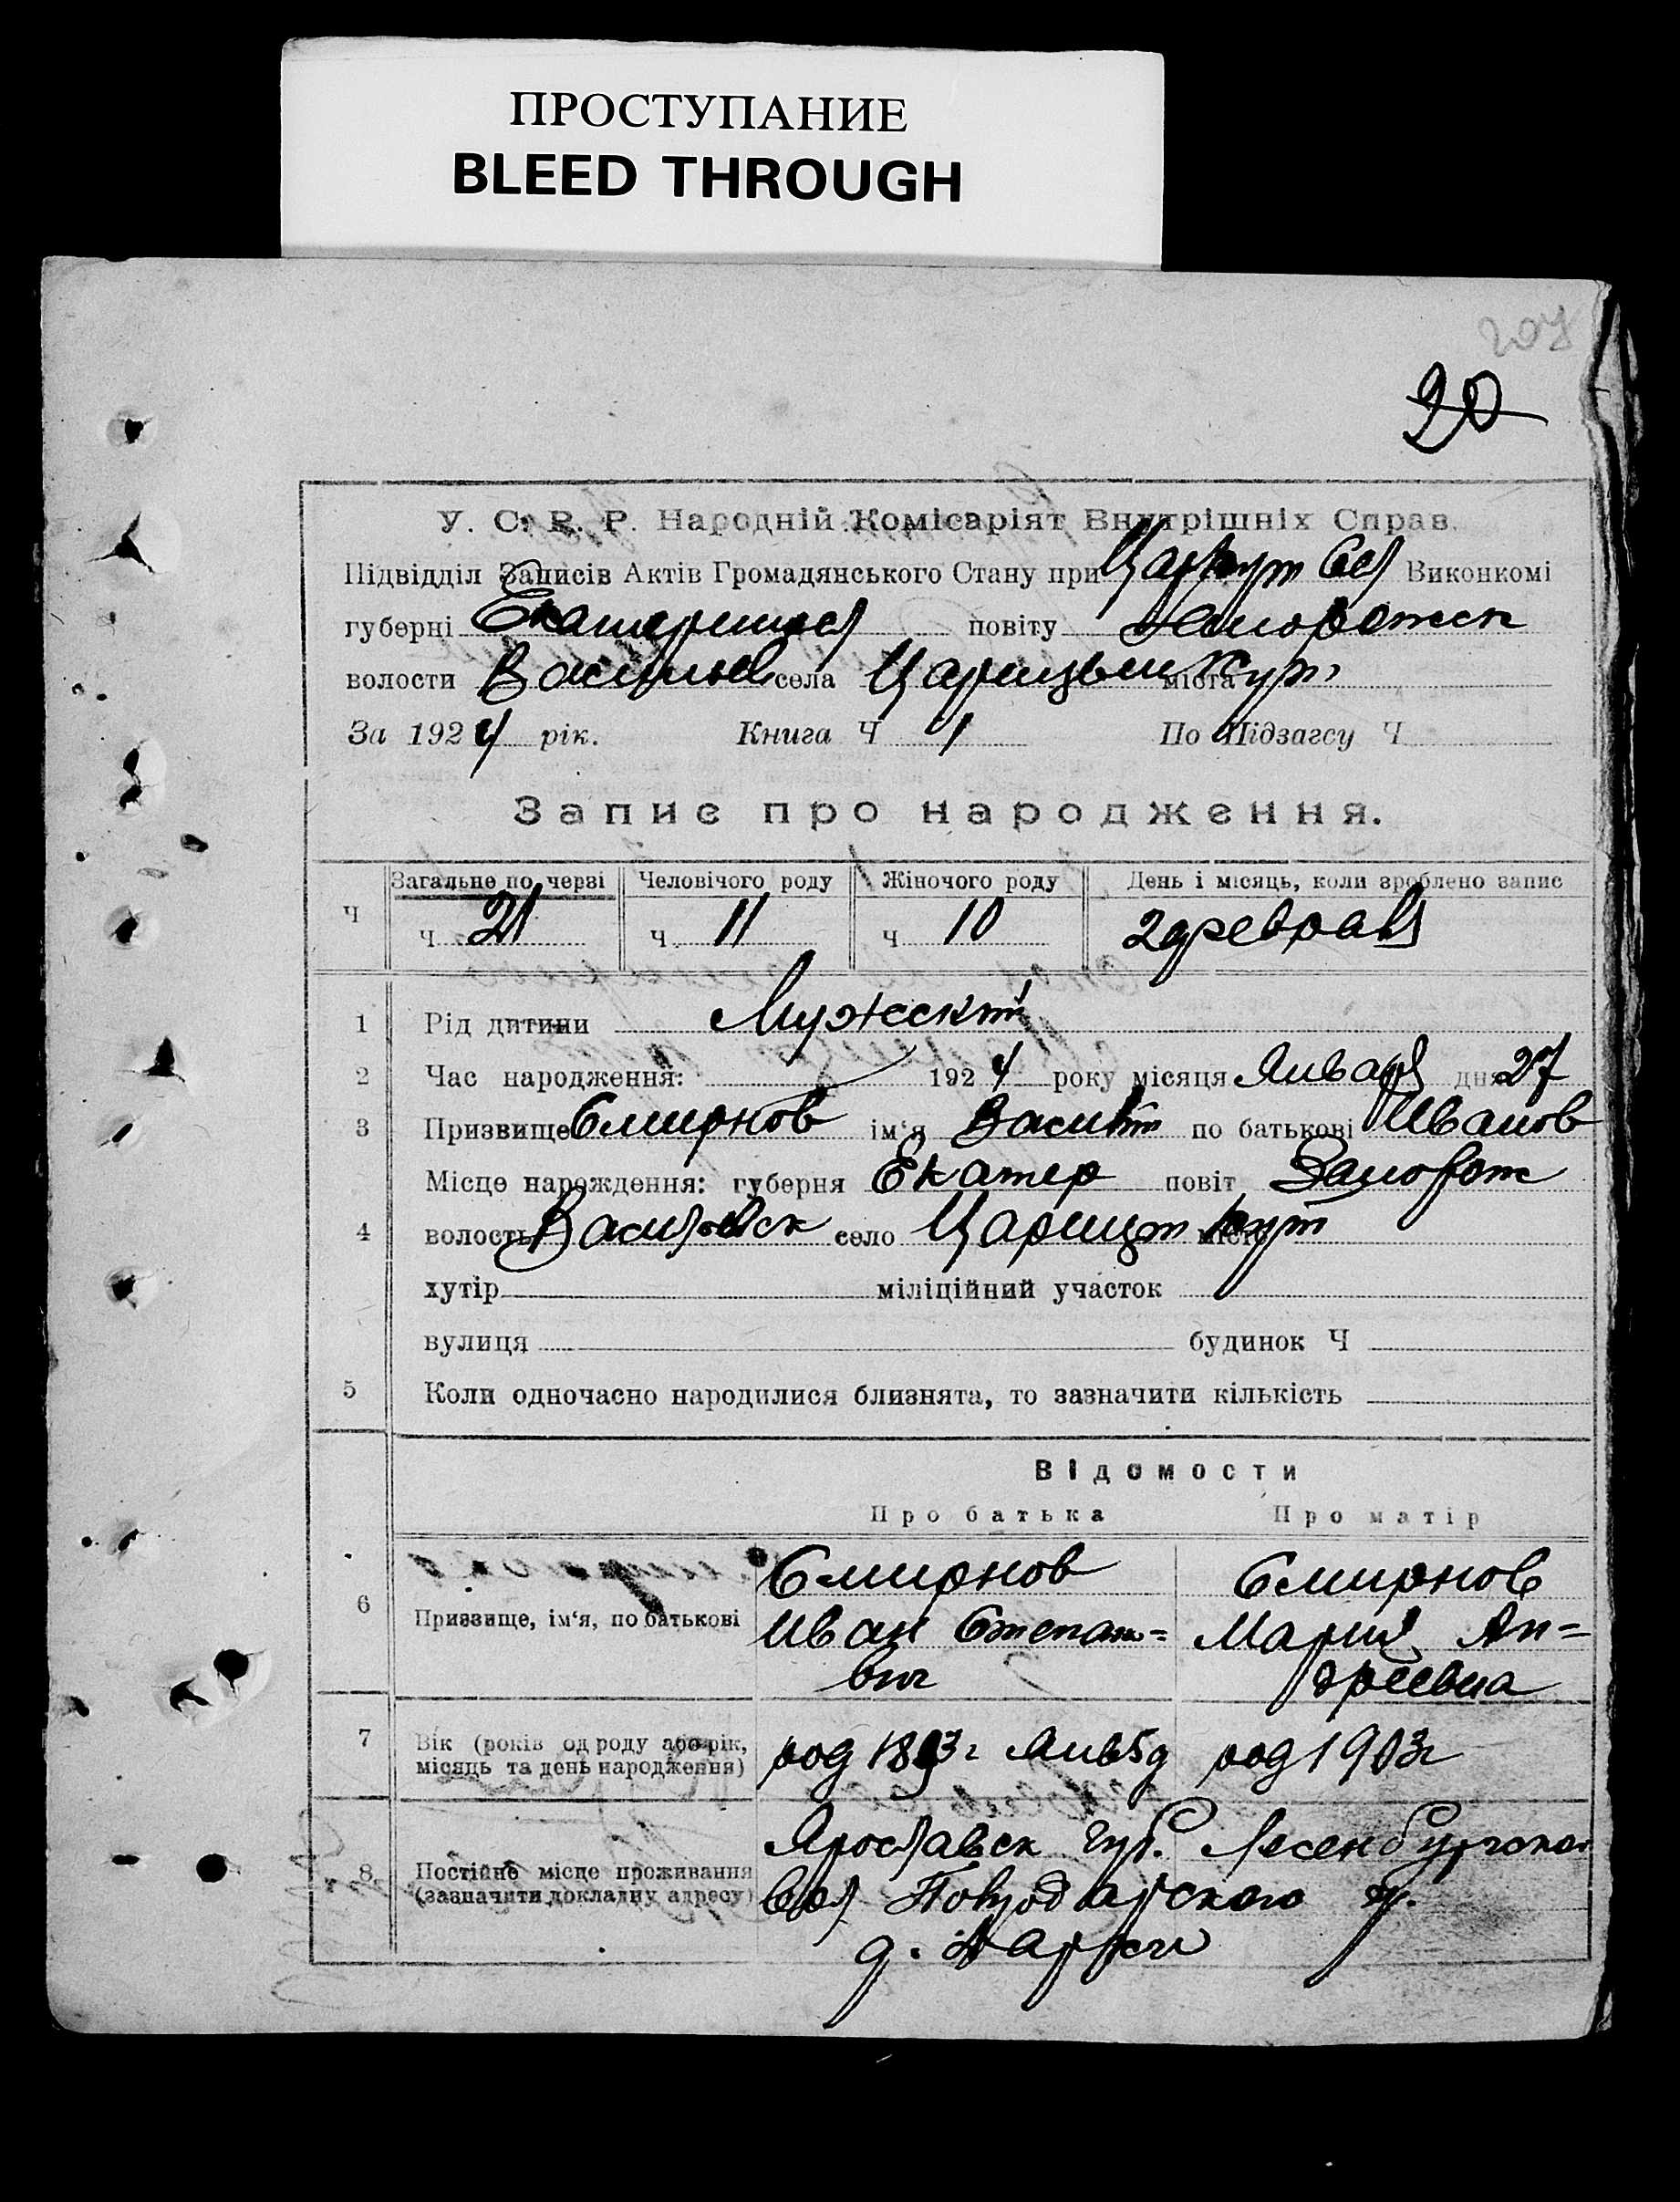 ПРОСТУПАНИЕ
BLEED THROUGH
207
20
У. С. Р. Р. Народній Комісаріят Внутрішніх Справ.
Підвідділ Записів Актів Громадянського Стану при Цар Кут Сел Виконкомі
губерні Екатериносл повіту Запорожск
волости Васильев села Царицын Кут міста
За 1924 рік. Книга Ч 1 По Підзагсу Ч
Запис про народження.
Загальне по черзі Человічого роду Жіночого роду День і місяць, коли зроблено запис
Ч ч 21 ч 11 ч 10 2 февраля
1 Рід дитини Мужеский
2 Час народження: 1924 року місяця Января дня 27
3 Призвище Смирнов ім'я Василий по батькові Иванов
Місце нарождення: губерня Екатер повіт Запорож
4 волость Васильевск село Царицын Кут місто
хутір міліційний участок
вулиця будинок Ч
5 Коли одночасно народилися близнята, то зазначити кількість
Відомости
Про батька Про матір
6 Призвище, ім'я, по батькові Смирнов Иван Степан=вич Смирнов Мария Ан=дреевна
7 Вік (років од роду або рік, місяць та день народження) род 1893 г Янв 5 д род 1903 г
8 Постійне місце проживання (зазначити докладну адресу) Ярославск губ.
Вол у.
д.